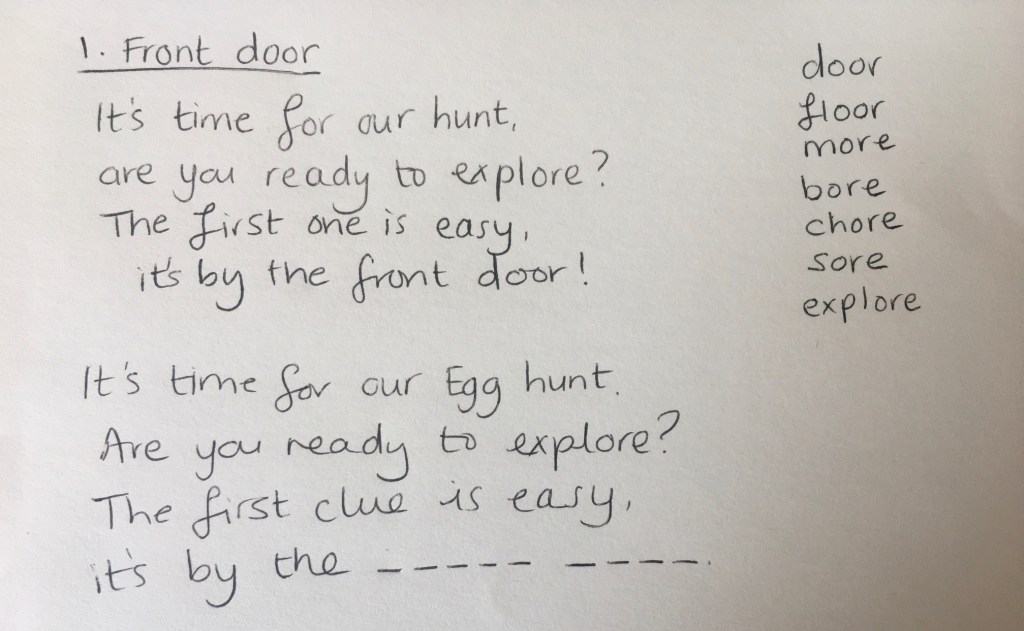 1. Front door
It's time for our hunt,
are you ready to explore?
The first one is easy,
it's by the front door!
It's time for our Egg hunt.
Are you ready to explore?
The first clue is easy,
it's by the _ _ _ _ _ _ _ _ _.
door
floor
more
bore
chore
sore
explore